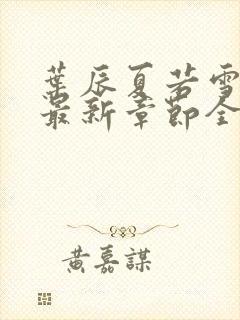 葉辰夏若雪
最新章節全
黃嘉謀